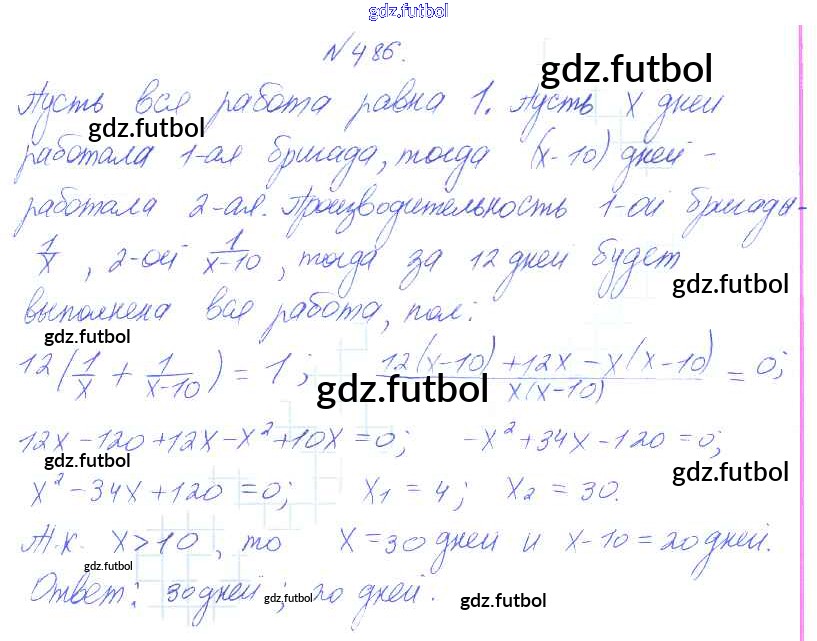 gdz.futbol
№486.
gdz.futbol
Пусть вся работа равна 1. Пусть x дней
gdz.futbol
работала 1-ая бригада, тогда (x-10) дней -
работала 2-ая. Производительность 1-ой бригады-
1/x, 2-ой 1/(x-10), тогда за 12 дней будет
gdz.futbol
выполнена вся работа, пол:
gdz.futbol
12(1/x + 1/(x-10)) = 1; (12(x-10)+12x-x(x-10))/(x(x-10)) = 0;
gdz.futbol
12x-120+12x-x²+10x=0; -x²+34x-120=0;
gdz.futbol
gdz.futbol
x²-34x+120=0; x₁=4; x₂=30.
Т.к. x>10, то x=30 дней и x-10=20 дней.
gdz.futbol
Ответ: 30 дней; 20 дней.
gdz.futbol
gdz.futbol